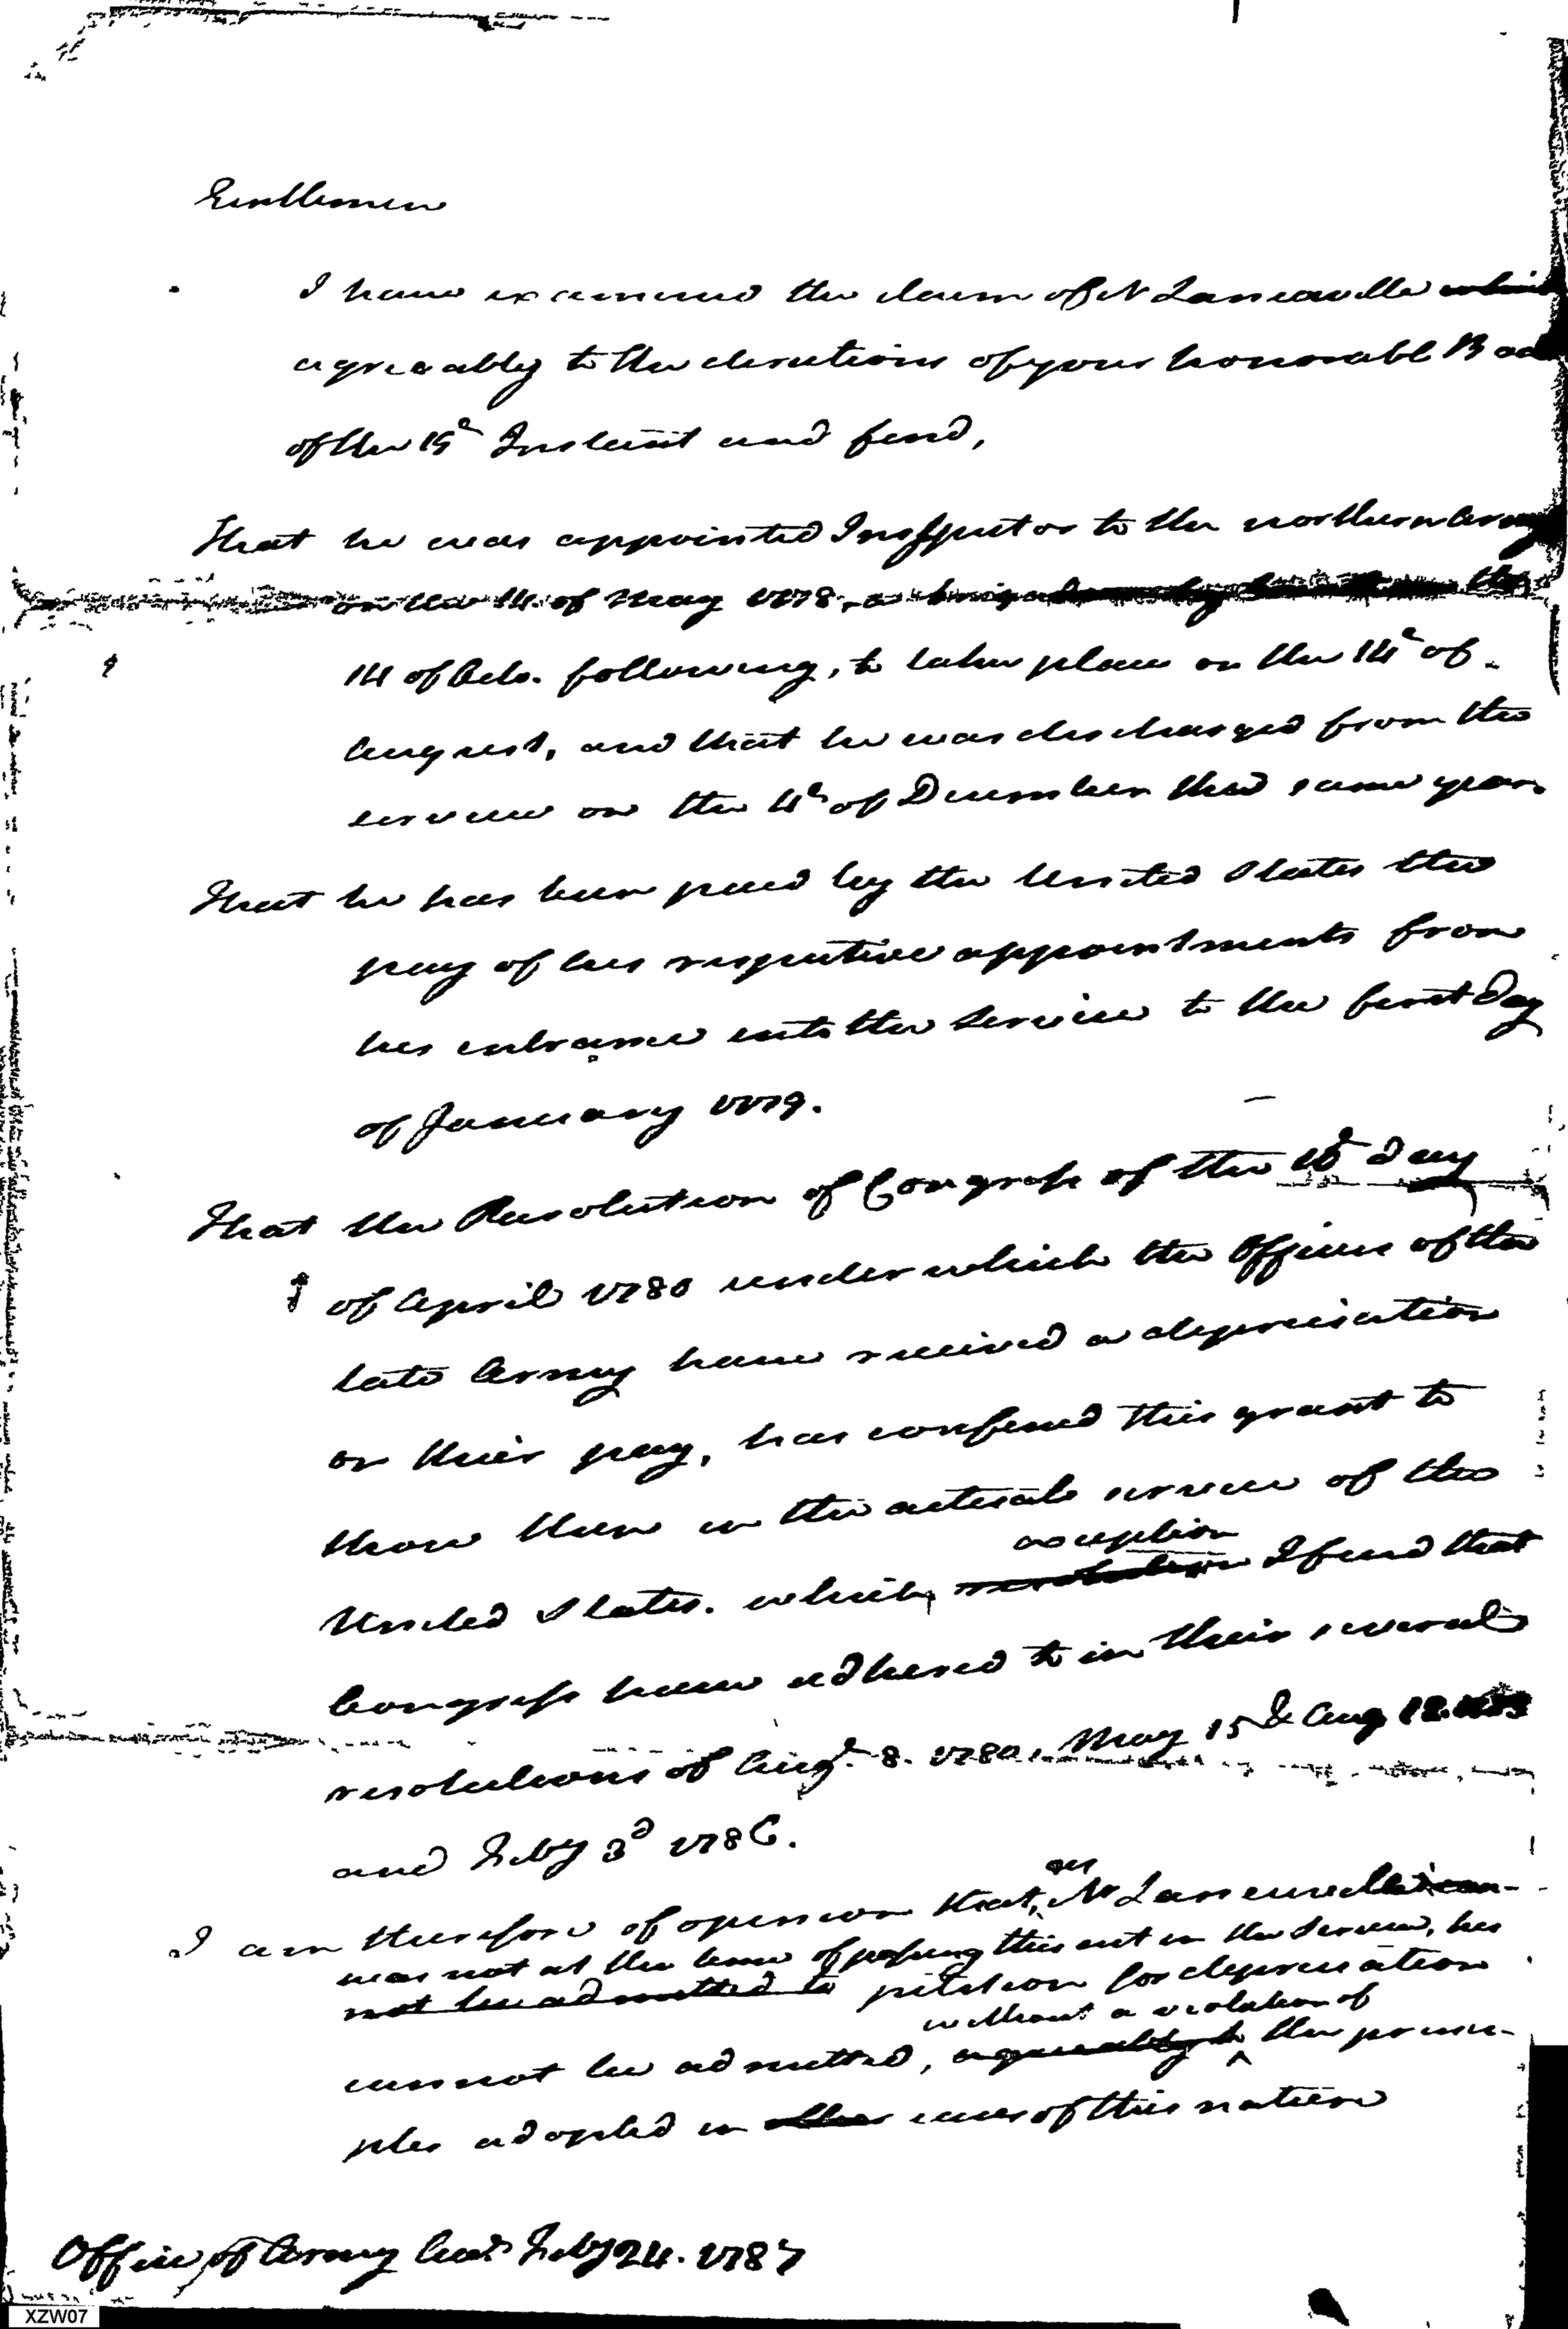 Gentlemen
I have examined the claim of Mr Laneuville
agreeably to the directions of your honorabl Boa
of the 19th Instant and find,
That he was appointed Inspector to the northern army
on the 14 of May 1778, a the
14 of Octo. following, to take place on the 14th of
August, and that he was discharged from the
service on the 4th of December the same year.
That he has been paid by the United States the
pay of his respective appointments from
his entrance into the Service to the first day
of January 1779.
That the Resolution of Congress of the 10th day
of April 1780 under which the Officers of the
late Army have received a depreciation
on their pay, has confined this grant to
those then in the actual service of the
exception
United States. which resolution I find that
Congress have adhered to in their several
resolutions of Augt. 8. 1780, May 15 & Aug 12.
and Feby 3d 1786.
as
I am therefore of opinion that, Mr Laneuville can-
was not at the time of passing this act in the Service, his
not be admitted to petition for depreciation
without a violation of
cannot be admitted, agreeably to the princi-
ples adopted in other cases of this nature
Office of Army Feby 24. 1787
XZW07